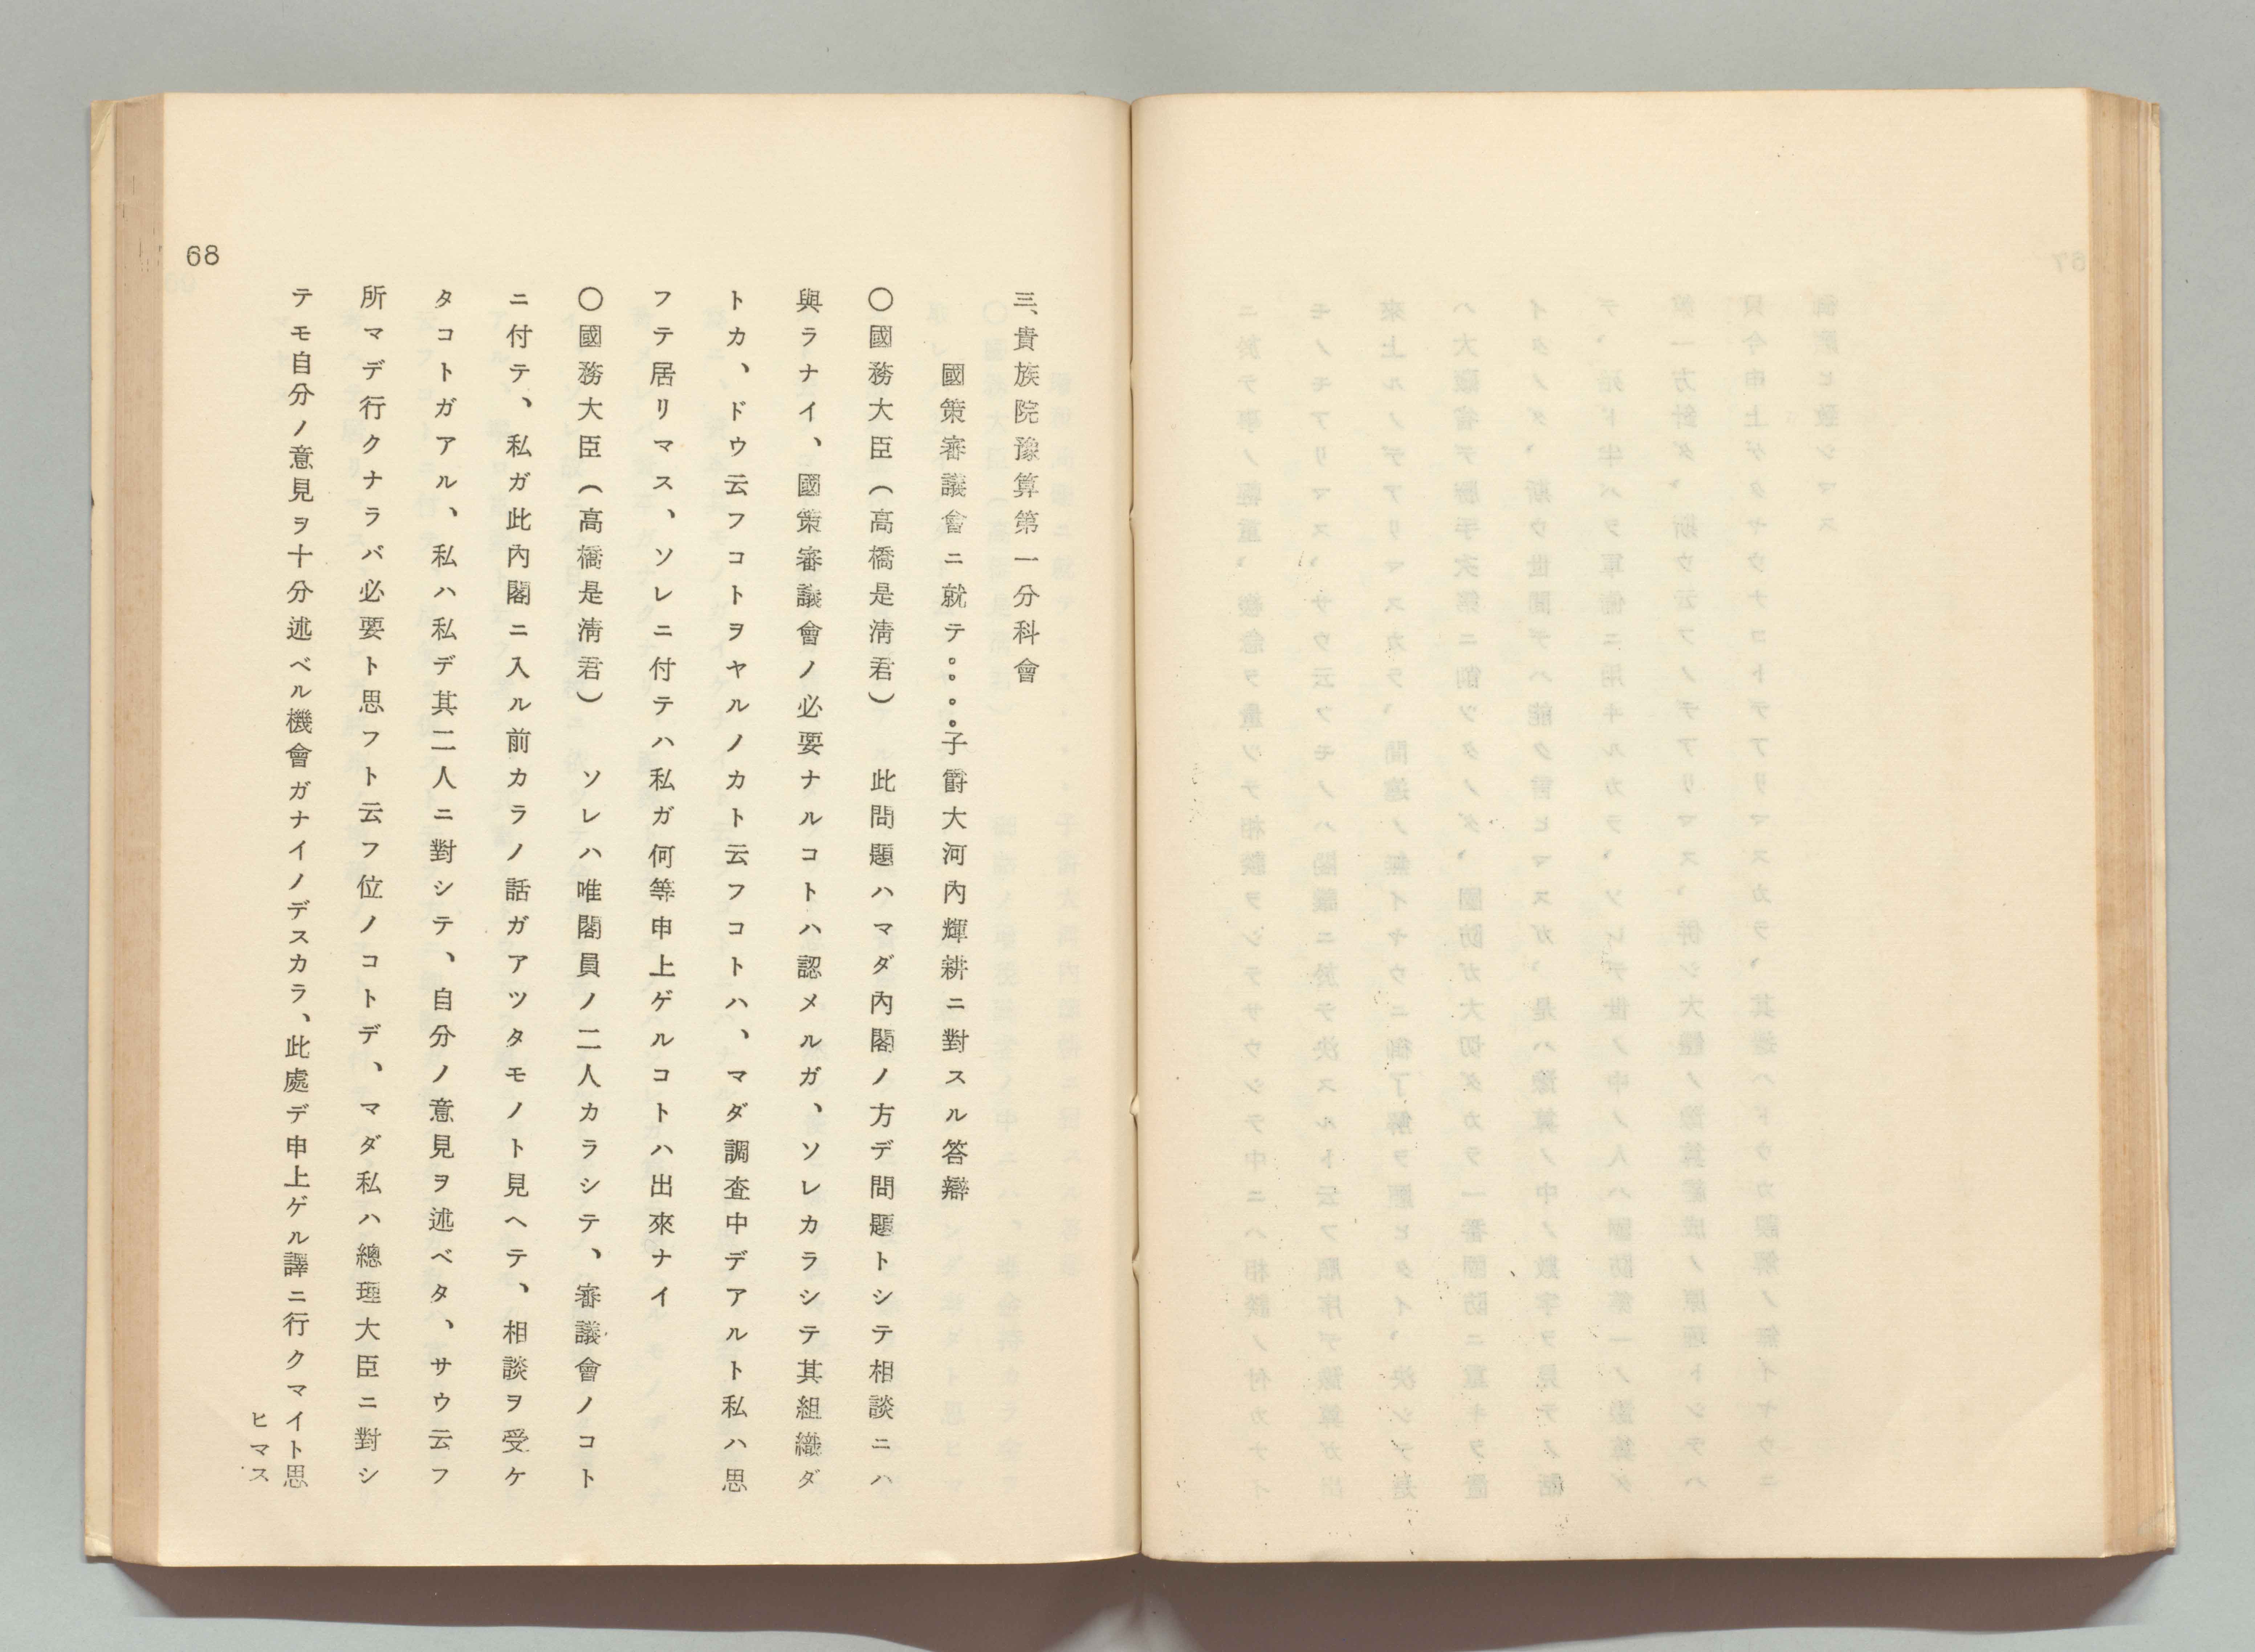 三、貴族院豫算第一分科會
國策審議會ニ就テ。。。。子爵大河內輝耕ニ對スル答辯
〇國務大臣(高橋是淸君) 此問題ハマダ內閣ノ方デ問題トシテ相談ニハ
與ラナイ、國策審議會ノ必要ナルコトハ認メルガ、ソレカラシテ其組織ダ
トカ、ドウ云フコトヲヤルノカト云フコトハ、マダ調査中デアルト私ハ思
フテ居リマス、ソレニ付テハ私ガ何等申上ゲルコトハ出來ナイ
〇國務大臣(高橋是淸君) ソレハ唯閣員ノ二人カラシテ、審議會ノコト
ニ付テ、私ガ此內閣ニ入ル前カラノ話ガアツタモノト見ヘテ、相談ヲ受ケ
タコトガアル、私ハ私デ其二人ニ對シテ、自分ノ意見ヲ述ベタ、サウ云フ
所マデ行クナラバ必要ト思フト云フ位ノコトデ、マダ私ハ總理大臣ニ對シ
テモ自分ノ意見ヲ十分述ベル機會ガナイノデスカラ、此處デ申上ゲル譯ニ行クマイト思
ヒマス
68